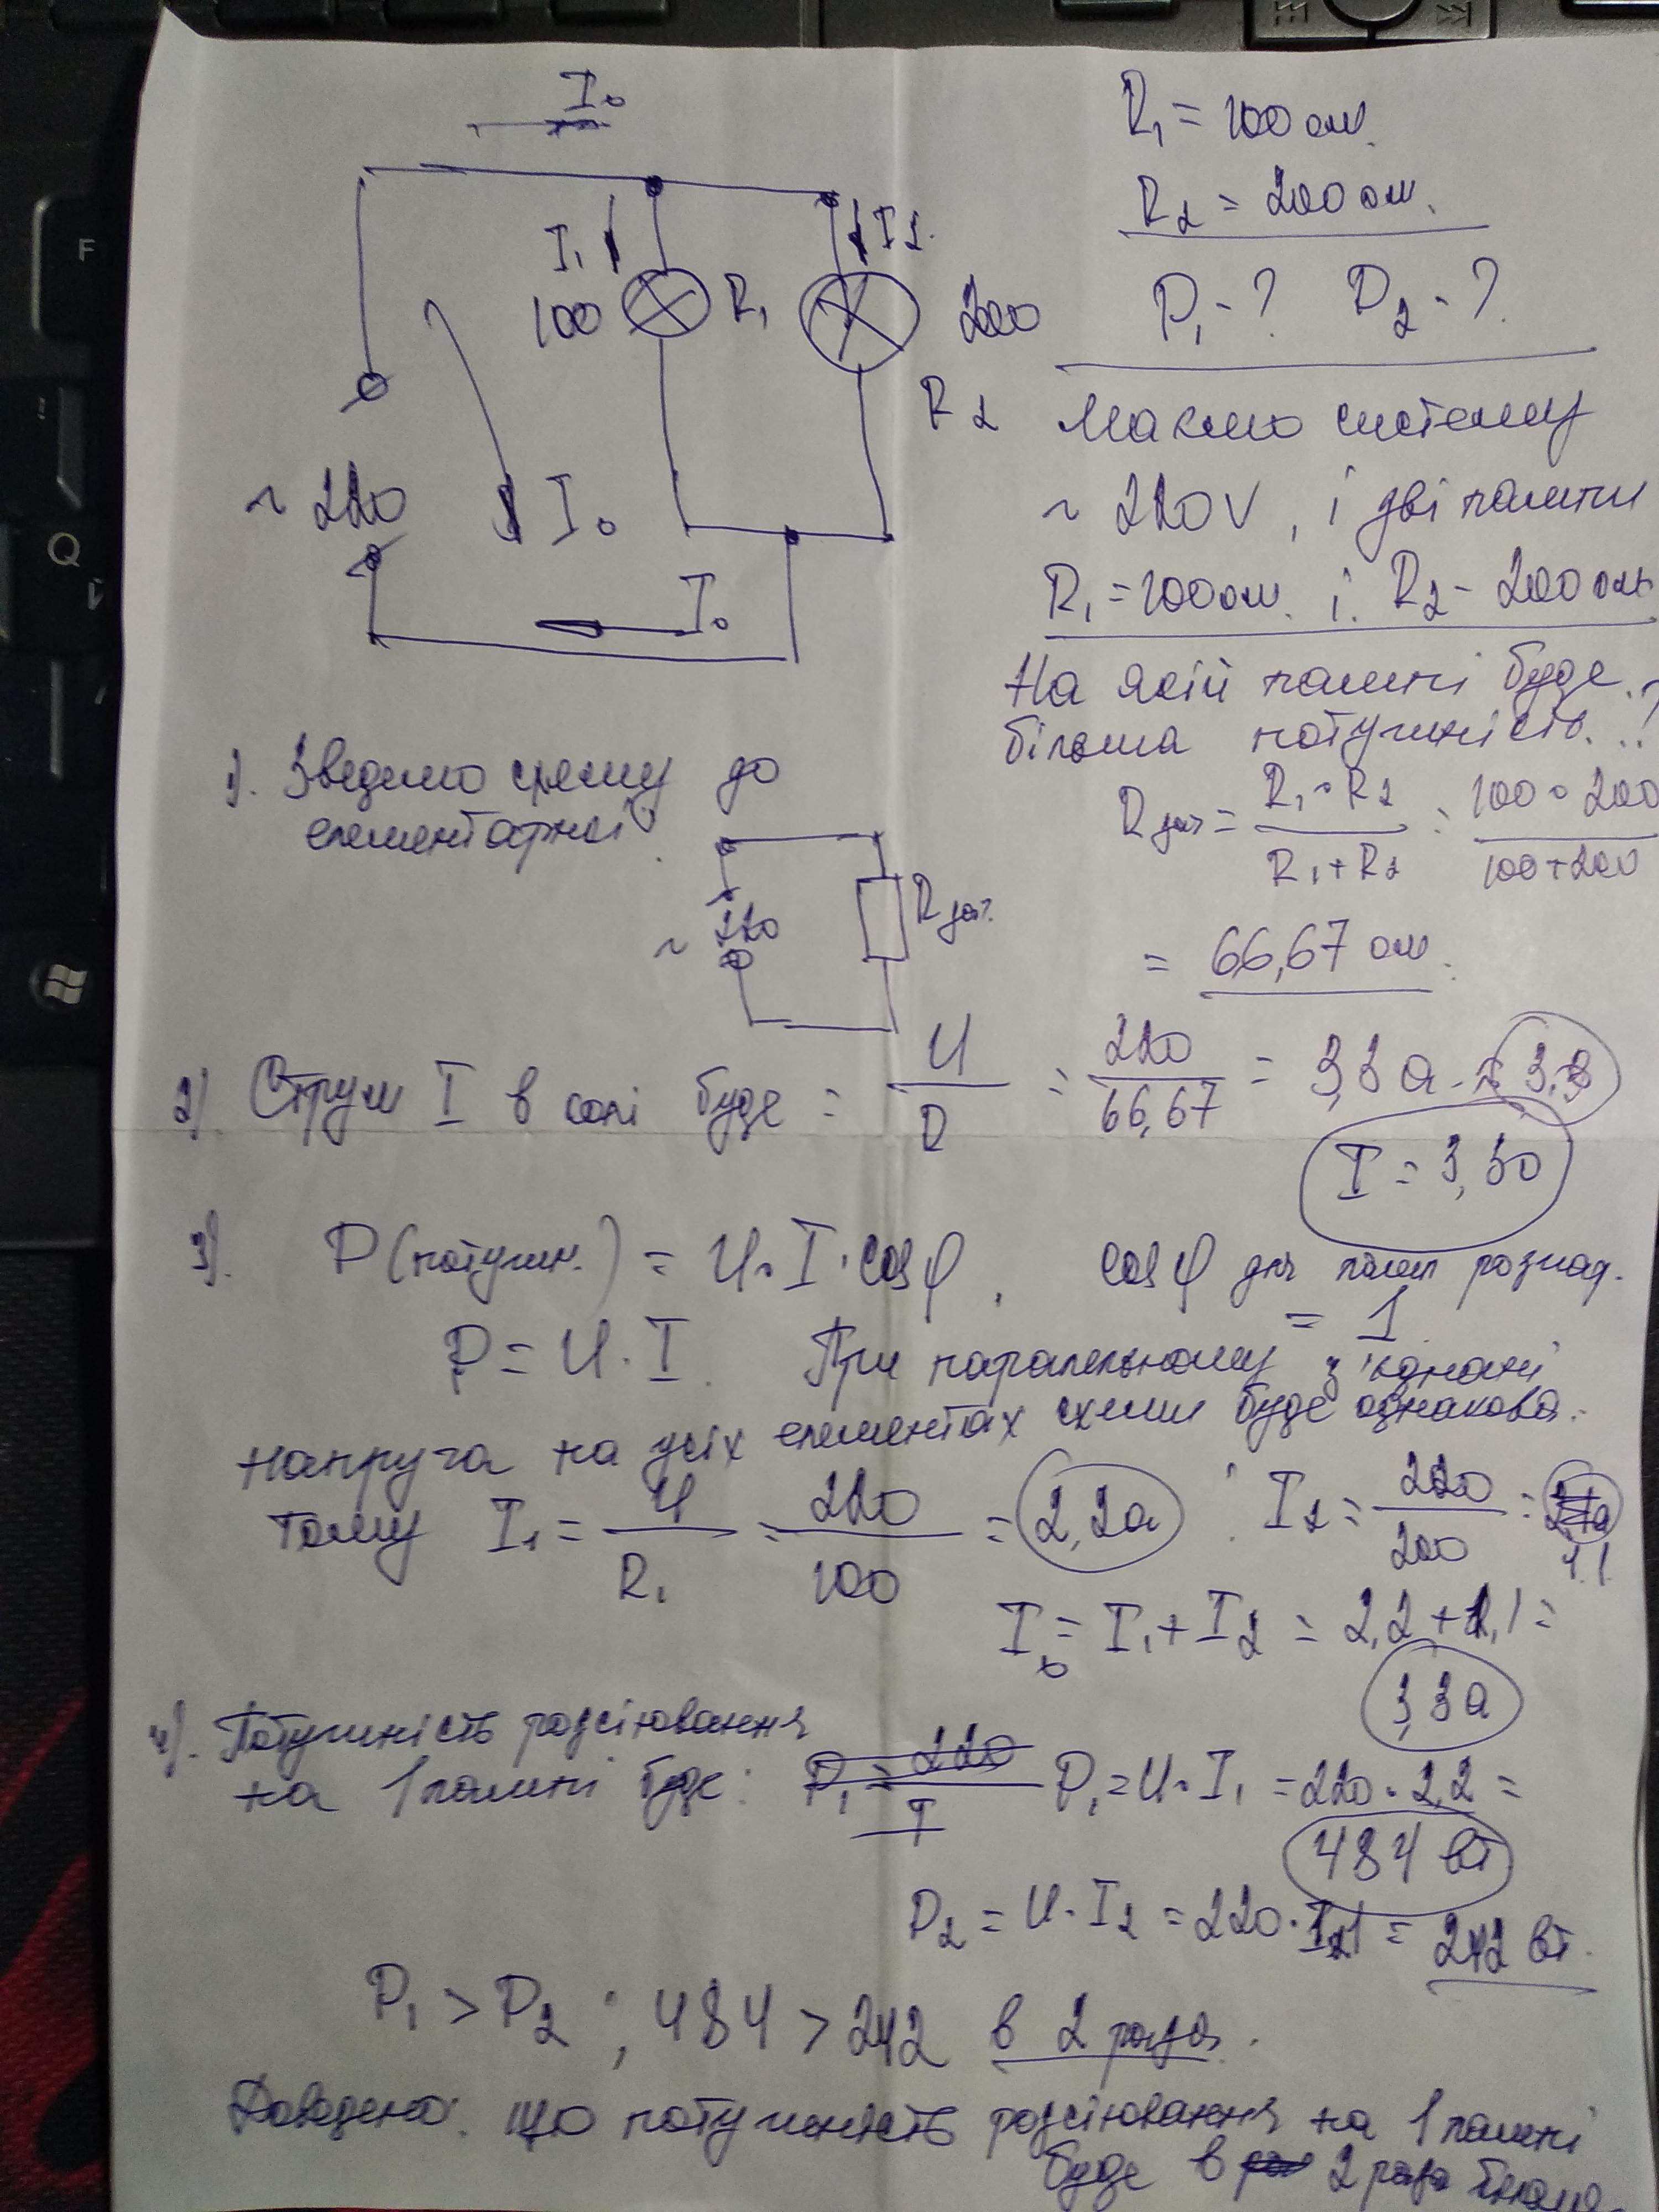 I₀
R₁ = 100 ом.
R₂ = 200 ом.
I₁
I₂.
100
R₁
200
R₂
P₁ - ? P₂ - ?
Маємо систему
~ 220
I₀
~ 220V, і дві лампи
I₀
R₁ = 100 ом. і. R₂ - 200 ом
На якій лампі буде
більша потужність..?
1). Зведемо схему до
елементарної.
R заг = R₁ · R₂ / R₁ + R₂ = 100 · 200 / 100 + 200
R заг.
~ 220
= 66,67 ом.
2). Струм I в колі буде = U / R = 220 / 66,67 = 3,3 а ≈ 3.3
I = 3,30
3). P (потужн.) = U · I · cos φ, cos φ для ламп розжар.
= 1.
P = U · I. При паралельному з'єднані
напруга на усіх елементах схеми буде однакова.
тому I₁ = U / R₁ = 220 / 100 = 2,2а ; I₂ = 220 / 200 =
1.1
I₀ = I₁ + I₂ = 2,2 + 1,1 =
3,3а
4). Потужність розсіювання
на 1 лампі буде: P₁ = 220 / I P₁ = U · I₁ = 220 · 2,2 =
484 вт
P₂ = U · I₂ = 220 · 1,1 = 242 вт.
P₁ > P₂ ; 484 > 242 в 2 раза.
Доведено: що потужність розсіювання на 1 лампі
буде в 2 раза